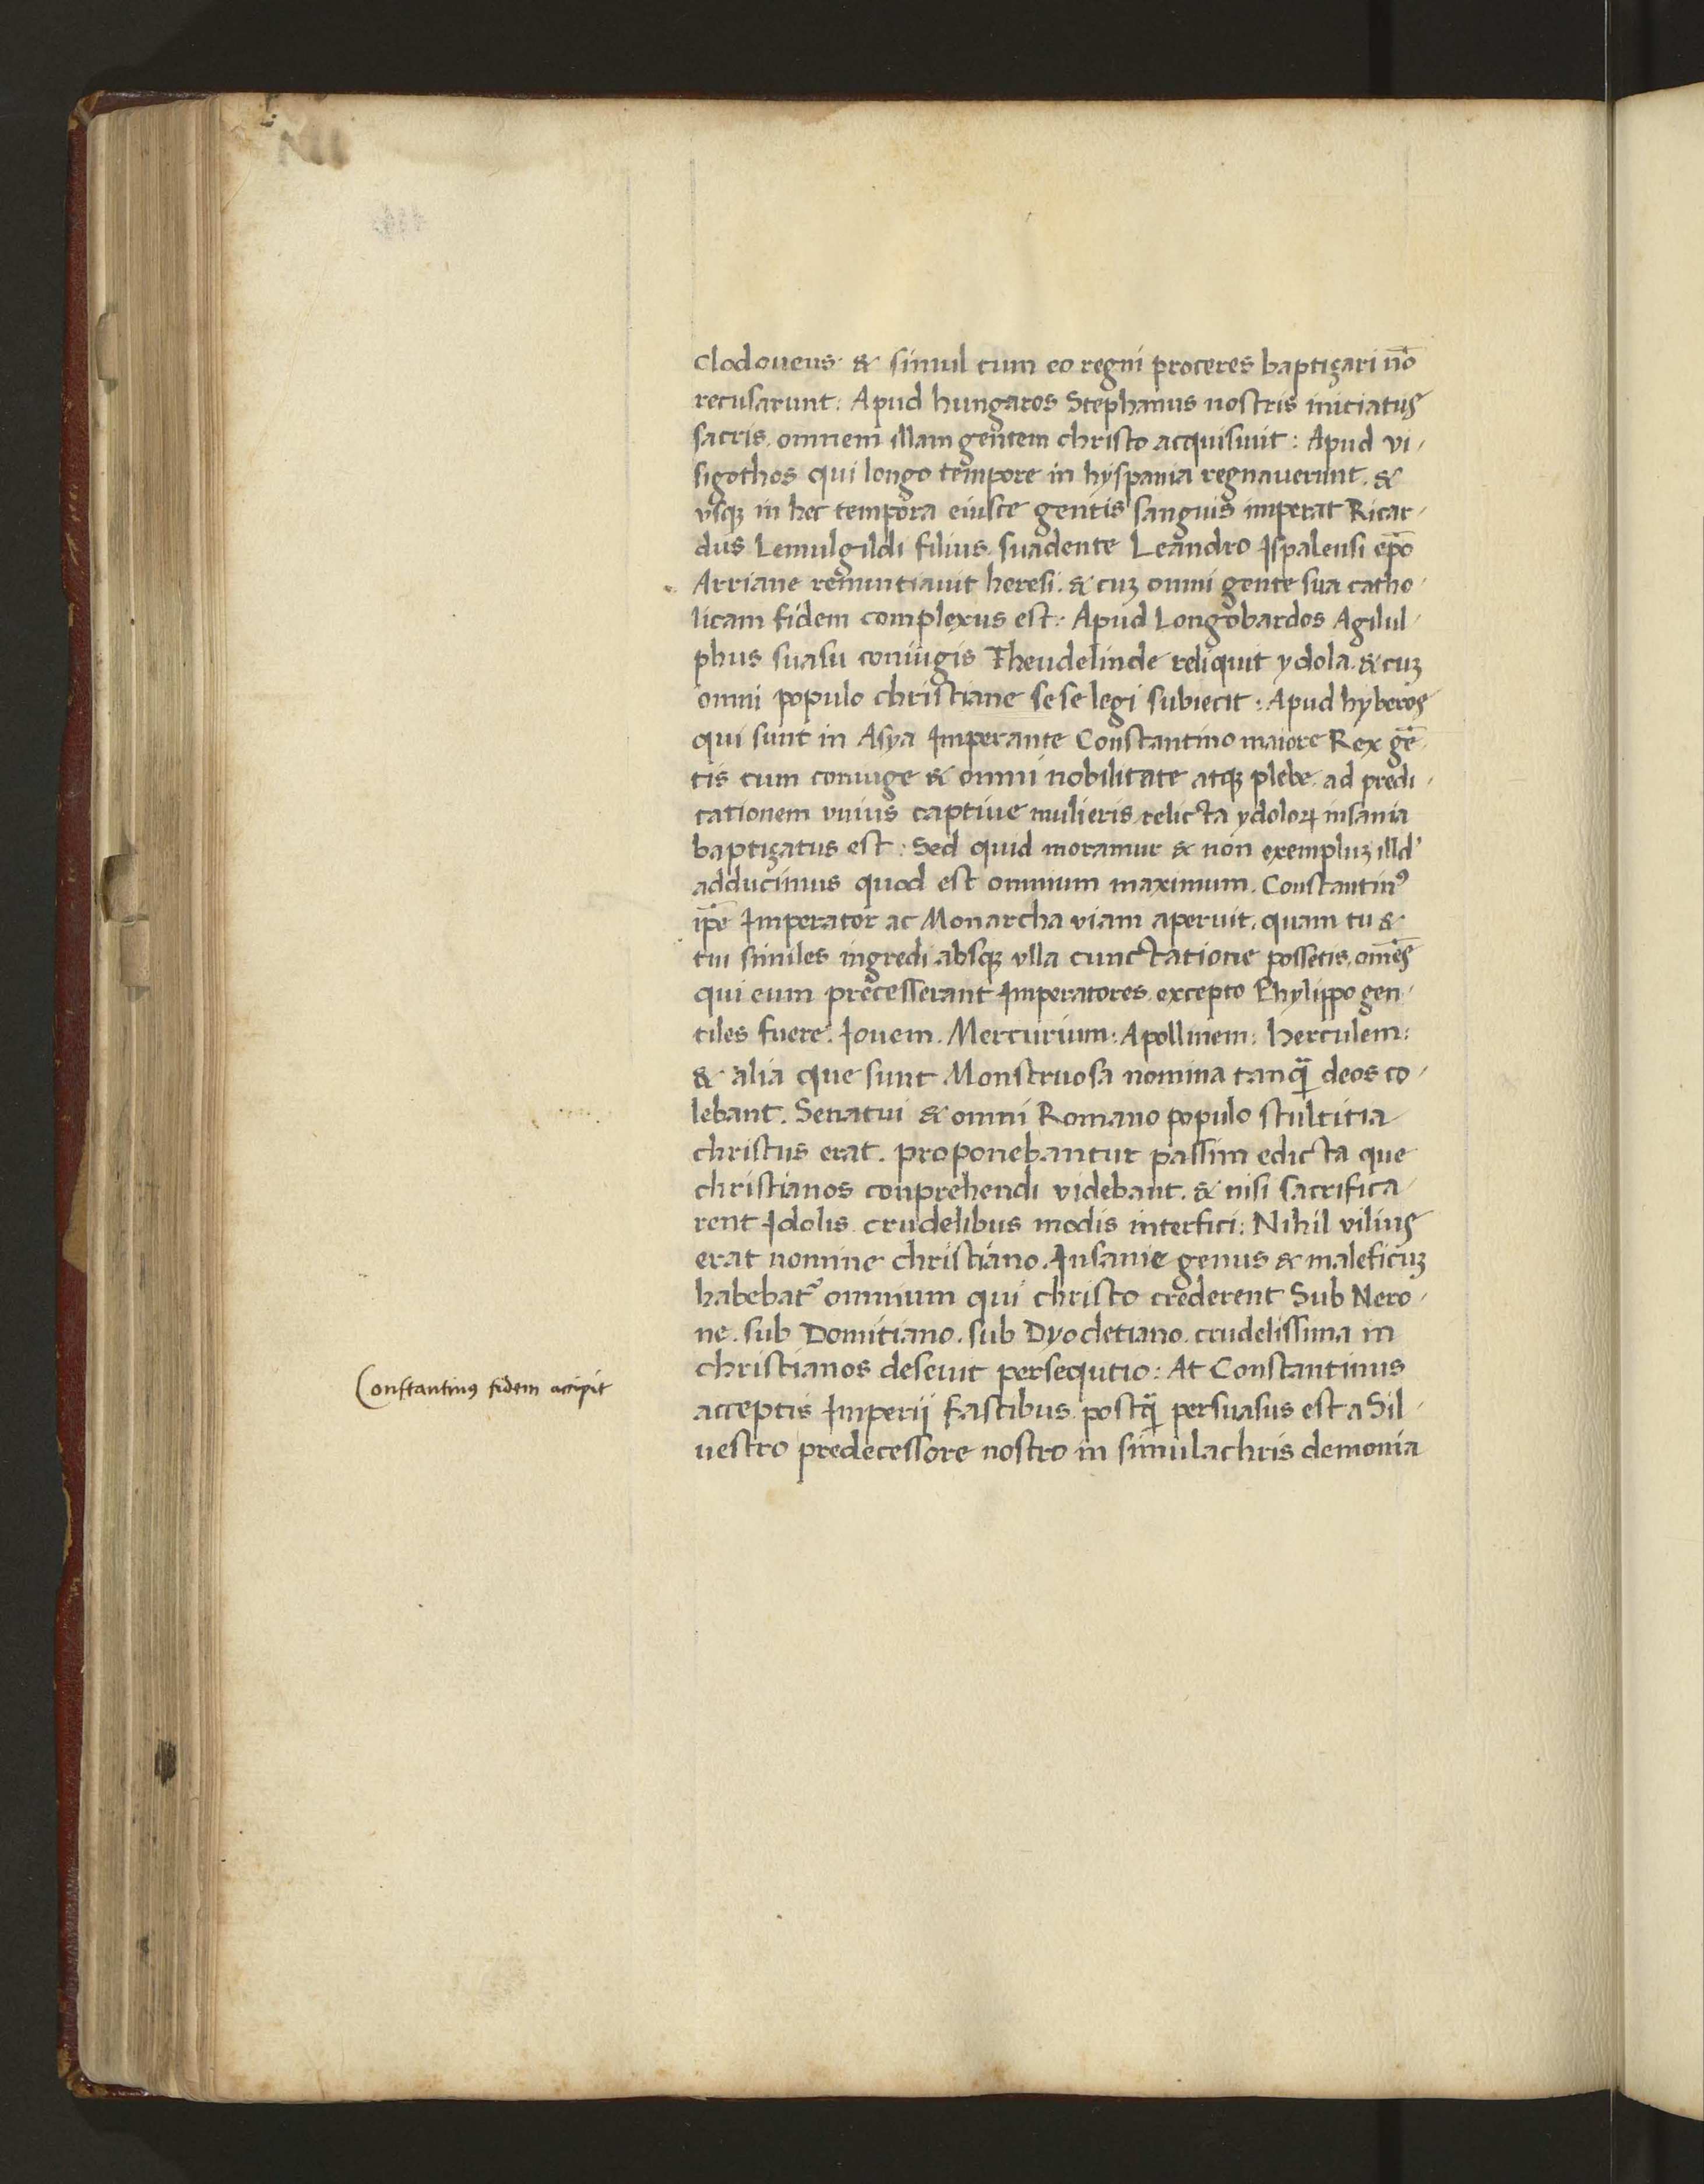 Clodoueus. & simul cum eo regni proceres baptizari nō
recusarunt: Apud hungaros Stephanus nostris iniciatus
sacris. omnem illam gentem christo acquisiuit: Apud vi-
sigothos qui longo tempore in hyspania regnauerunt. &
vsqꝫ in hec tempora eiusce gentis sanguis imperat Ricar-
dus Lemulgildi filius suadente Leandro Ispalensi ep̄o
Arriane renuntiauit heresi. & cuꝫ omni gente sua catho-
licam fidem complexus est: Apud Longobardos Agilul-
phus suasu coniugis Theudelinde reliquit ydola. & cuꝫ
omni populo christiane sese legi subiecit: Apud hyberos
qui sunt in Asya Imperante Constantino maiore Rex gē-
tis cum coniuge & omni nobilitate atqꝫ plebe. ad predi-
cationem vnius captiue mulieris relicta ydoloꝝ insania
baptizatus est: Sed quid moramur & non exempluꝫ illd'
adducimus quod est omnium maximum. Constantinꝰ
ip̄e Imperator ac Monarcha viam aperuit. quam tu &
tui similes ingredi absqꝫ vlla cunctatione possetis. om̄es
qui eum precesserant Imperatores excepto Phylippo gen-
tiles fuere. Iouem. Mercurium: Apollinem: herculem:
& alia que sunt Monstruosa nomina tanq̄ deos co-
lebant. Senatui & omni Romano populo stultitia
christus erat. proponebantur passim edicta que
christianos conprehendi videbant. & nisi sacrifica-
rent Idolis crudelibus modis interfici: Nihil vilius
erat nomine christiano. Insanie genus & maleficuꝫ
habebat᷑ omnium qui christo crederent Sub Nero-
ne. sub Domitiano. sub Dyocletiano. crudelissima in
christianos deseuit persequtio: At Constantinus
Constantinus fidem accipit
acceptis Imperij fascibus postq̄ persuasus est a Sil-
uestro predecessore nostro in simulachris demonia